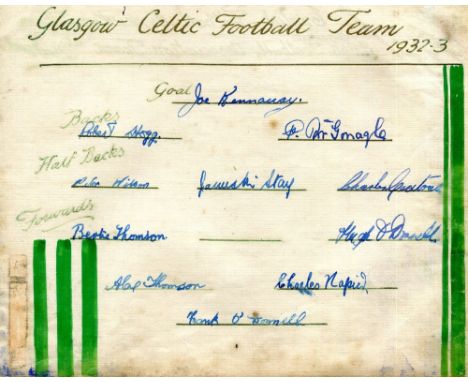 Glasgow Celtic Football Team
1932-3
Goal Joe Kennaway.
Backs
Robert Hogg P. McGonagle
Half Backs
Peter Wilson James Stay Charles Geatons
Forwards
Bertie Thomson Hugh O'Donnell
Alex Thomson Charles Napier
Frank O'Donnell